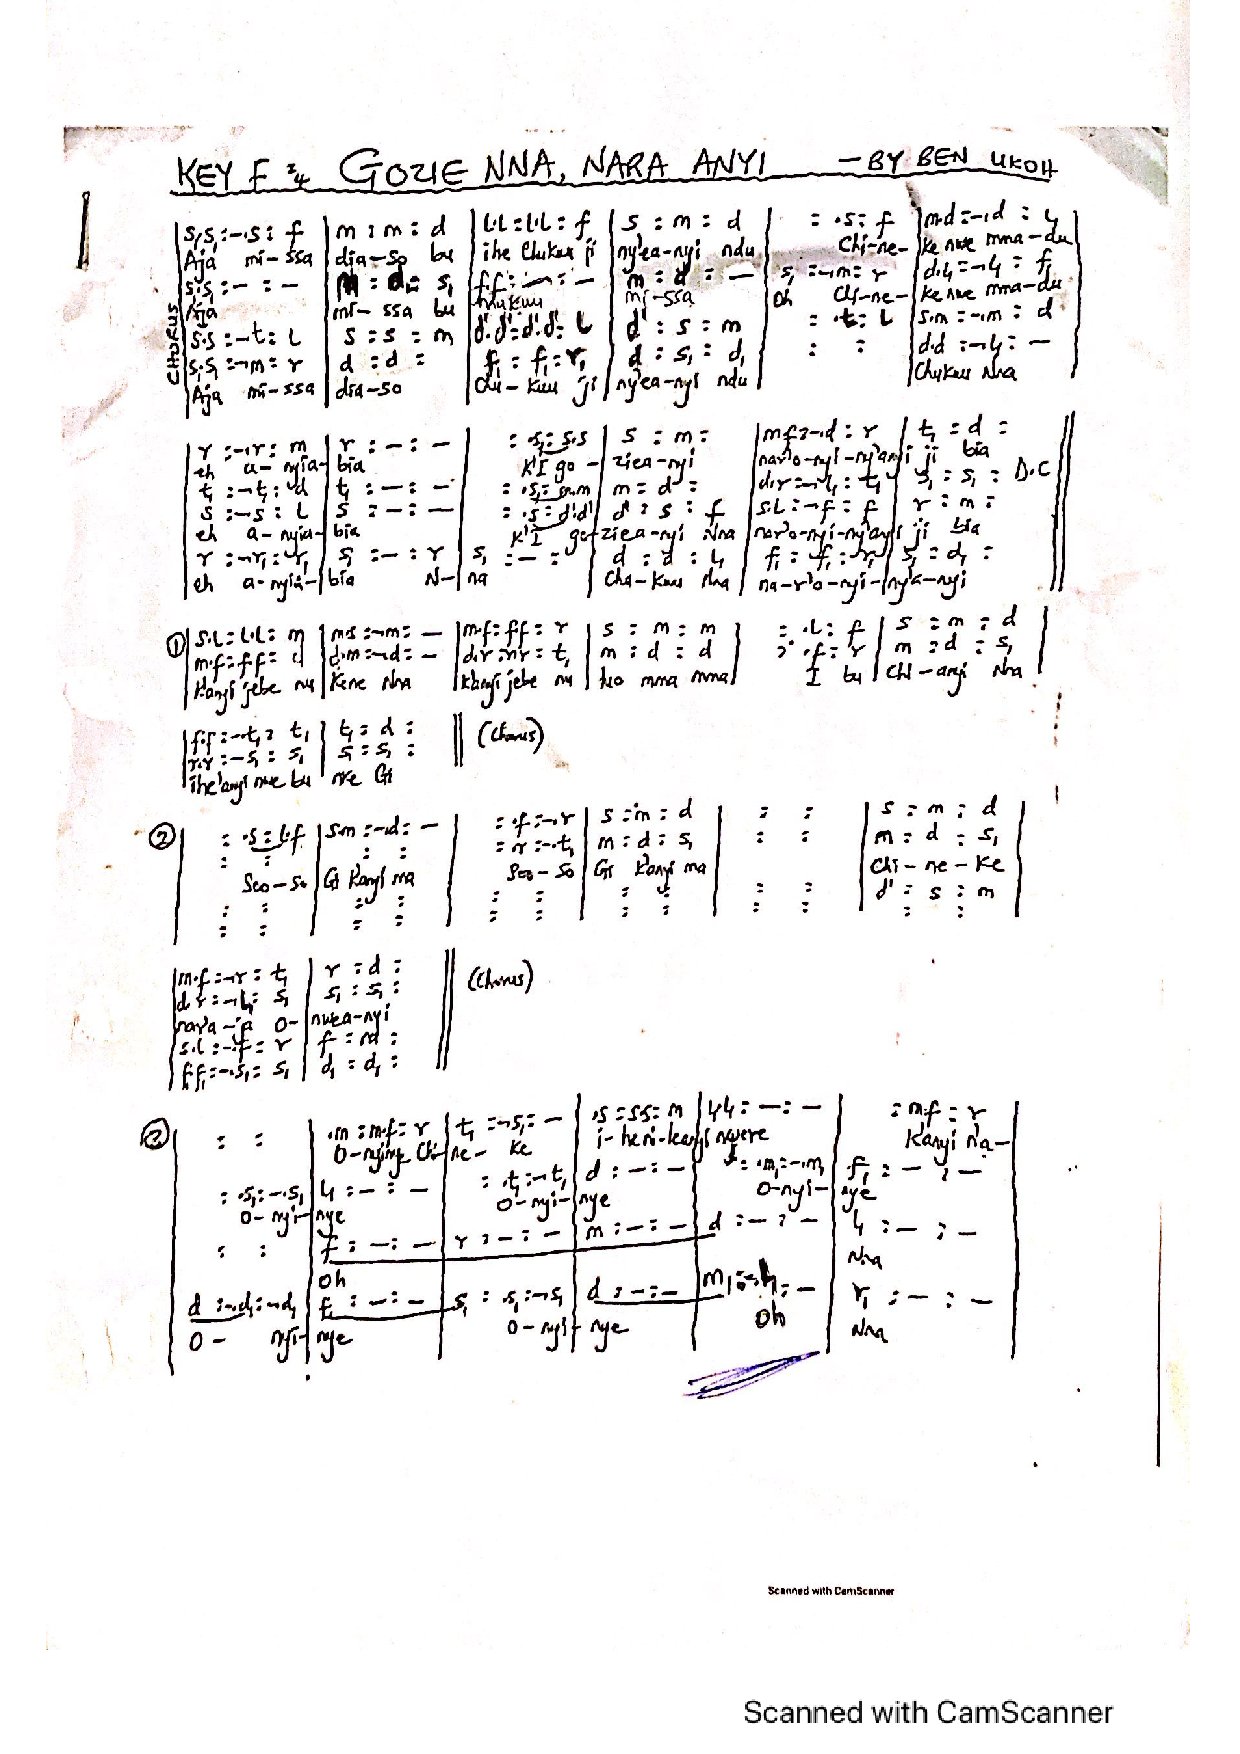 KEY F 3/4 GOZIE NNA, NARA ANYI – BY BEN UKOH
CHORUS
| s,s, :-.s : f | m : m : d | l.l : l.l : f | s : m : d | : .s : f | m.d :-.d : l, |
Aja mi-ssa | dia-so bu | ihe Chukwu ji | ny'ea-nyi ndu | Chi-ne- | ke nwe mma-du
s.s, : – : – | m : d : s, | f.f : – : – | m : d : – | s, :-.m : r | d.l, :-.l, : f, |
Aja | mi- ssa bu | mi-ssa | oh Chi-ne- | ke nwe mma-du
s.s :-.t : l | s : s : m | d'.d' : d'.d' : l | d' : s : m | : .t : l | s.m :-.m : d |
s.s, :-.m : r | d : d : | f, : f, : r, | d : s, : d, | : : | d.d :-.l, : – |
Aja mi-ssa | dia-so | Chu-kwu ji | ny'ea-nyi ndu | Chukwu Nna
| r :-.r : m | r : – : – | : .s, : s.s | s : m : | m.f :-.d : r | t, : d : |
eh a-nyia- | bia | K'I go- | ziea-nyi | nar'o-nyi-ny'anyi ji bia
t, :-.t, : d | t, : – : – | : .s, : s.m | m : d : | d.r :-.l, : t, | s, : s, : D.C
s :-.s : l | s : – : – | : .s : d'd' | d' : s : f | s.l :-.f : f | r : m :
eh a-nyia- | bia | K'I go- | ziea-nyi Nna | nar'o-nyi-ny'anyi ji bia
r :-.r, : r, | s, : – : r | s, : – : | d : d : l, | f, : f, : r, | s, : d, :
eh a-nyia- | bia N- | na | Chu-kwu Nna | na-r'o-nyi- | ny'a-nyi
① | s.l : l.l : m | m.s :-.m : – | m.f : f.f : r | s : m : m | : .l : f | s : m : d |
m.f : f.f : d | d.m :-.d : – | d.r : r.r : t, | m : d : d | : .f : r | m : d : s, |
Kanyi jebe nu | Kene Nna | Kanyi jebe nu | ko mma mma | I bu | Chi-anyi Nna
| f.f :-.t, : t, | t, : d : || (Chorus)
r.r :-.s, : s, | s, : s, :
ihe'anyi nwe bu | nke Gi
② | : .s : l.f | s.m :-.d : – | : .f :-.r | s : m : d | : : | s : m : d |
: : | : : | : .r :-.t, | m : d : s, | : : | m : d : s, |
Soo-so | Gi Kanyi ma | Soo-so | Gi Kanyi ma | Chi-ne-ke
: : | : : | : : | : : | : : | d' : s : m
: : | : : | : : | : : | : : | : :
| m.f :-.r : t, | r : d : || (Chorus)
d.r :-.l, : s, | s, : s, :
nara-ja o- | nwea-nyi
s.l :-.f : r | f : m :
f,f, :-.s, : s, | d, : d, :
③ | : : | .m : m.f : r | t, :-.s, : – | .s : s.s : m | l,l, : – : – | : m.f : r |
O-nyinye Chi- | ne- ke | i-heni-kanyi nwere | Kanyi na-
: .s, :-.s, | l, : – : – | : .t, :-.t, | d : – : – | : .m, :-.m, | f, : – : –
O-nyi- | nye | O-nyi- | nye | O-nyi- | nye
: : | f : – : – | r : – : – | m : – : – | d : – : – | l, : – : –
Oh | Nna
d :-.d, :-.d, | f, : – : – | s, : .s, :-.s, | d : – : – | m, : : – | r, : – : –
O- nyi- | nye | O-nyi- | nye | Oh | Nna
Scanned with CamScanner
Scanned with CamScanner